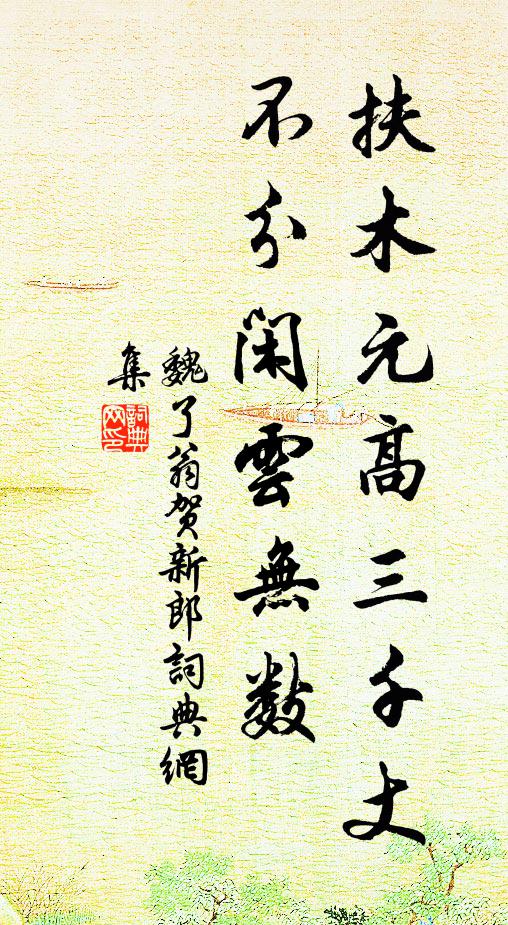 扶木元高三千丈
不分閑雲無數
魏了翁賀新郎詞典網
集
詞典网印